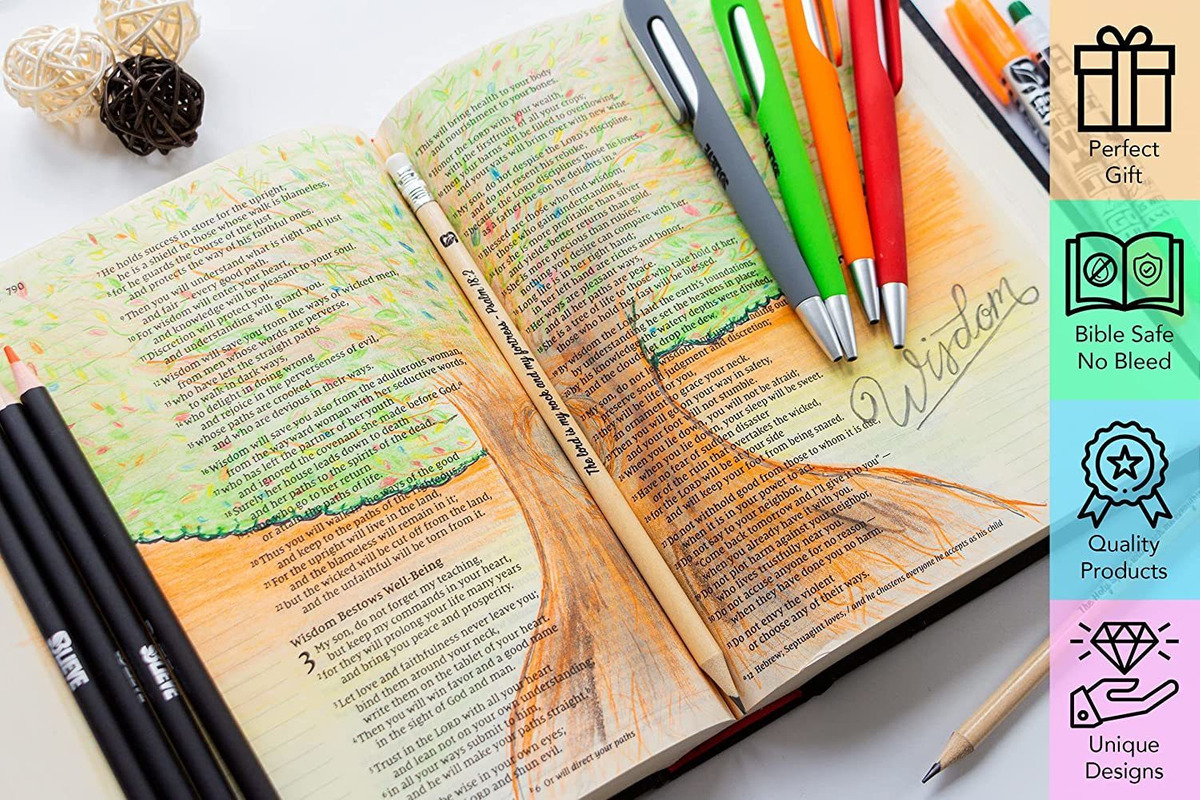 790
⁷He holds success in store for the upright,
he is a shield to those whose walk is blameless,
⁸for he guards the course of the just
and protects the way of his faithful ones.
⁹Then you will understand what is right and just
and fair—every good path.
¹⁰For wisdom will enter your heart,
and knowledge will be pleasant to your soul.
¹¹Discretion will protect you,
and understanding will guard you.
¹²Wisdom will save you from the ways of wicked men,
from men whose words are perverse,
¹³who have left the straight paths
to walk in dark ways,
¹⁴who delight in doing wrong
and rejoice in the perverseness of evil,
¹⁵whose paths are crooked
and who are devious in their ways.
¹⁶Wisdom will save you also from the adulterous woman,
from the wayward woman with her seductive words,
¹⁷who has left the partner of her youth
and ignored the covenant she made before God.
¹⁸Surely her house leads down to death
and her paths to the spirits of the dead.
¹⁹None who go to her return
or attain the paths of life.
²⁰Thus you will walk in the ways of the good
and keep to the paths of the righteous.
²¹For the upright will live in the land,
and the blameless will remain in it;
²²but the wicked will be cut off from the land,
and the unfaithful will be torn from it.
Wisdom Bestows Well-Being
3 My son, do not forget my teaching,
but keep my commands in your heart,
²for they will prolong your life many years
and bring you peace and prosperity.
³Let love and faithfulness never leave you;
bind them around your neck,
write them on the tablet of your heart.
⁴Then you will win favor and a good name
in the sight of God and man.
⁵Trust in the LORD with all your heart
and lean not on your own understanding;
⁶in all your ways submit to him,
and he will make your paths straight.
be wise in your own eyes;
LORD and shun evil.
6 Or will direct your paths
will bring health to your body
and nourishment to your bones.
Honor the LORD with your wealth,
with the firstfruits of all your crops;
then your barns will be filled to overflowing,
and your vats will brim over with new wine.
My son, do not despise the LORD's discipline,
and do not resent his rebuke,
because the LORD disciplines those he loves,
the son he delights in.
Blessed are those who find wisdom,
those who gain understanding,
for she is more profitable than silver
and yields better returns than gold.
She is more precious than rubies;
nothing you desire can compare with her.
Long life is in her right hand;
in her left hand are riches and honor.
Her ways are pleasant ways,
and all her paths are peace.
She is a tree of life to those who take hold of her;
those who hold her fast will be blessed.
By wisdom the LORD laid the earth's foundations,
by understanding he set the heavens in place;
by his knowledge the watery depths were divided,
let drop the dew.
My son, do not
judgment and discretion;
grace your neck.
on your way in safety,
foot will not stumble.
you will not be afraid;
your sleep will be sweet.
Have no fear of sudden disaster
or of the ruin that overtakes the wicked,
for the LORD will be at your side
and will keep your foot from being snared.
Do not withhold good from those to whom it is due,
when it is in your power to act.
Do not say to your neighbor,
“Come back tomorrow and I'll give it to you”—
when you already have it with you.
Do not plot harm against your neighbor,
who lives trustfully near you.
Do not accuse anyone for no reason—
when they have done you no harm.
Do not envy the violent
or choose any of their ways.
12 Hebrew; Septuagint loves, / and he chastens everyone he accepts as his child
Wisdom
The lord is my rock and my fortress - Psalm 18:2
SUEVE
SUEVE
Perfect
Gift
Bible Safe
No Bleed
Quality
Products
Unique
Designs